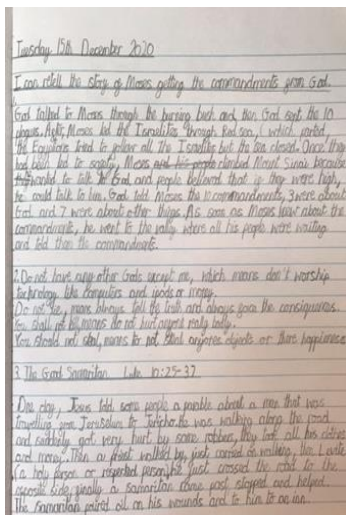 Tuesday 15th December 2020
I can retell the story of Moses getting the commandments from God.
1.
God talked to Moses through the burning bush and then God sent the 10
plagues. After, Moses led the Israelites through Red sea, which parted,
the Egyptians tried to follow all the Israelites but the sea closed. Once they
had been led to safety, Moses and his people climbed Mount Sinai because
wanted to talk to God and people believed that if they were high,
he could talk to him. God told Moses the 10 commandments, 3 were about
God and 7 were about other things. As soon as Moses about the
commandments, he went to the vally where all his people were waiting
and told them the commandments.
2. Do not have any other Gods except me, which means don't worship
technology like computers and or money.
Do not lie, means always tell the truth and always the
You shall not means do not hurt anyone body.
You should not steal, means do not steal anyones objects or there happiness
3. The Good Samaritan Luke 10:25-37
One day, Jesus told some people a parable about a man that was
travelling from Jerusalem to he was walking along the road
and suddenly got very hurt by some robbers, they took all his clothes
and money. Then a priest walked by, just carried on walking, the Levite
(a holy person or respected person) he just crossed the road to the
opposite side, finally a samaritan came past stopped and helped.
The samaritan poured oil on his wounds and to him to an inn.